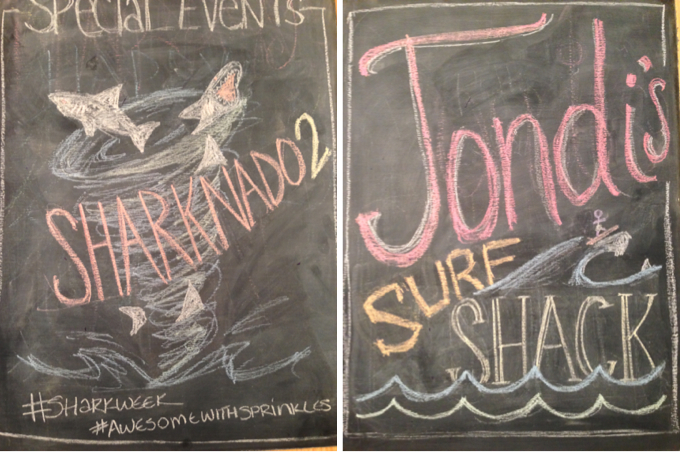 SPECIAL EVENTS
SHARKNADO 2
#SHARKWEEK
#AWESOMEWITHSPRINKLES
Jondi's
SURF
SHACK